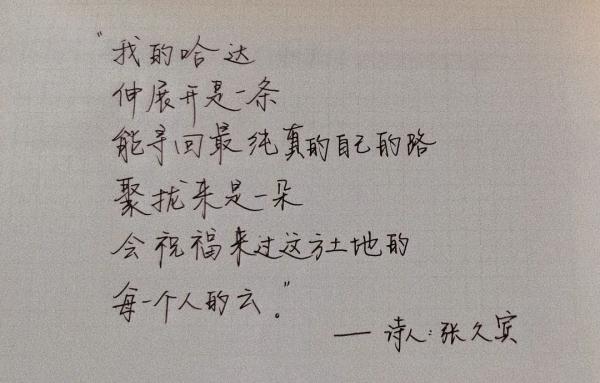 “我的哈达
伸展开是一条
能寻回最纯真的自己的路
聚拢来是一朵
会祝福来过这方土地的
每一个人的云。”
— 诗人:张久宾